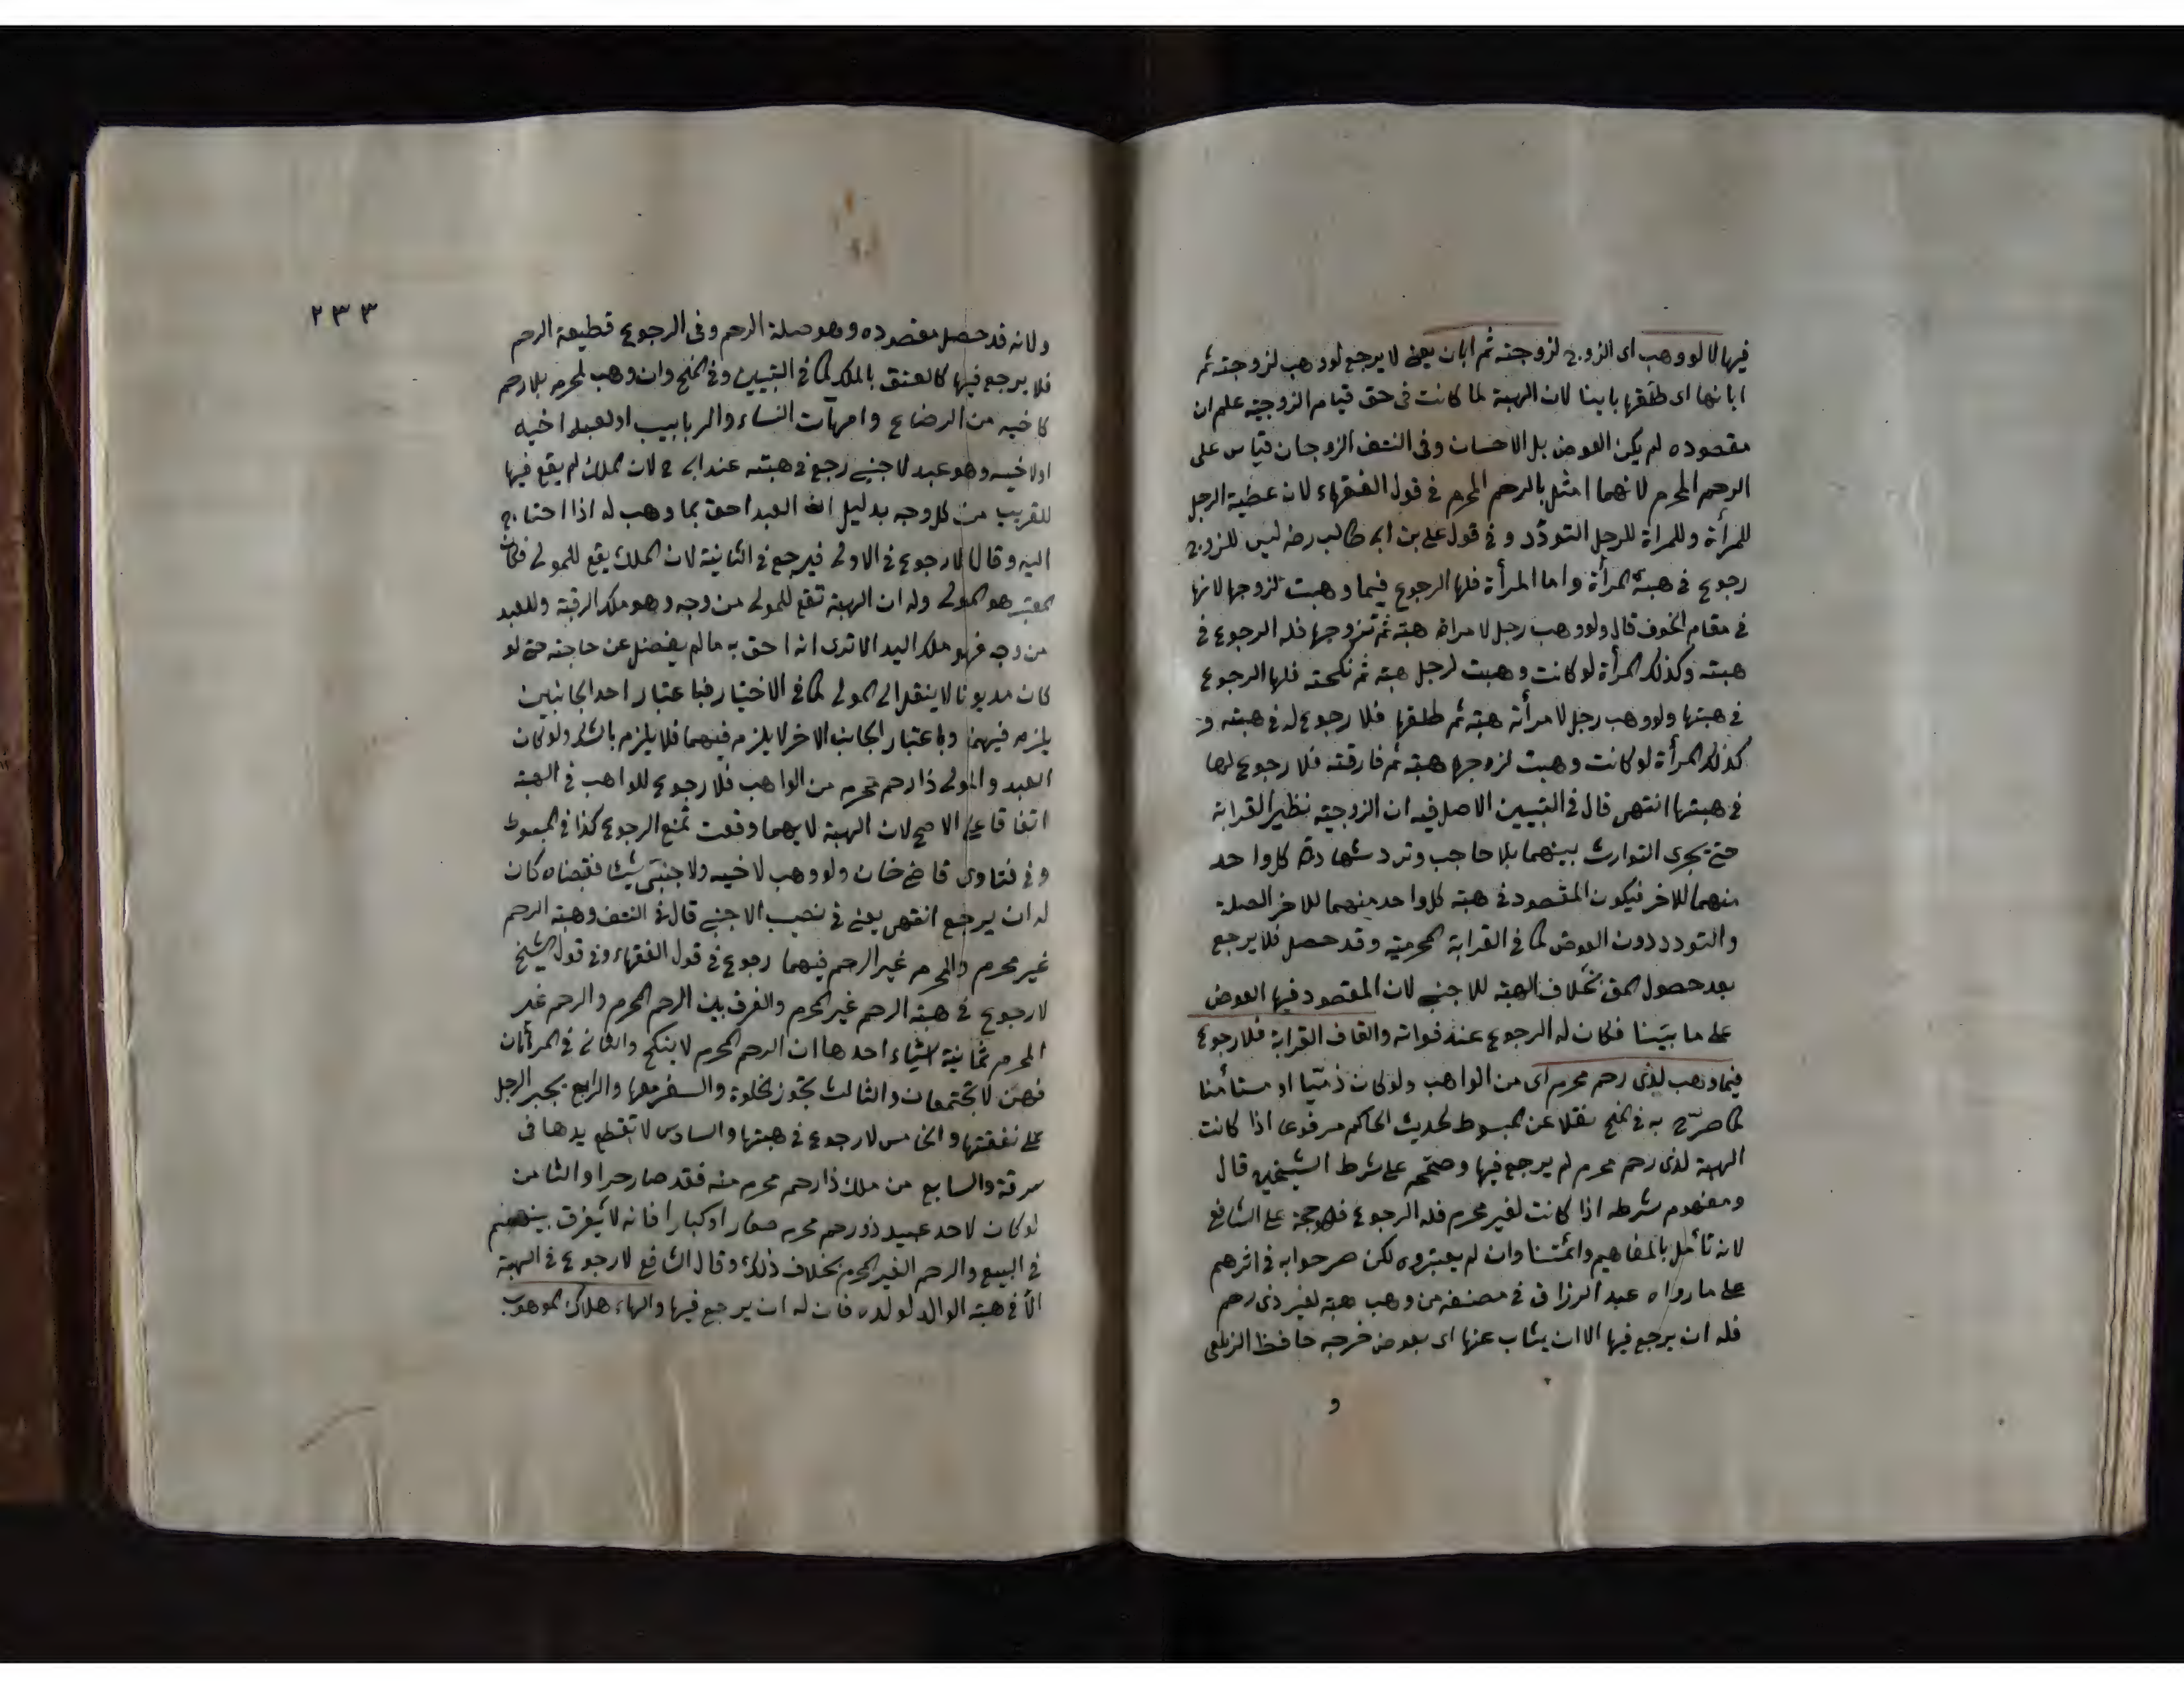 فيها لا لو وهب اى الزوج لزوجته ثم ابان يعنى لا يرجع لو وهب لزوجته ثم
ابانها اى طلقها باينا لان الهبة لما كانت فى حق قيام الزوجية علم ان
مقصوده لم يكن العوض بل الاحسان وفى النتف الزوجان قياس على
الرحم المحرم لانهما امثل بالرحم المحرم فى قول الفقهاء لان عطية الرجل
للمرأة وللمراة للرجل التودّد و فى قول على بن ابى طالب رضه ليس للزوج
رجوع فى هبة المرأة واما المرأة فلها الرجوع فيما وهبت لزوجها لانها
فى مقام الخوف قال ولو وهب رجل لامراة هبة ثم تزوجها فله الرجوع فى
هبته وكذلك المرأة لو كانت وهبت لرجل هبة ثم نكحته فلها الرجوع
فى هبتها ولو وهب رجل لامرأته هبة ثم طلقها فلا رجوع له فى هبته و
كذلك المرأة لو كانت وهبت لزوجها هبة ثم فارقته فلا رجوع لها
فى هبتها انتهى قال فى التبيين الاصل فيه ان الزوجية نظير القرابة
حتى يجرى التوارث بينهما بلا حاجب وترد شهادة كل واحد
منهما للاخر فيكون المقصود فى هبة كل واحد منهما للاخر الصلة
والتودد دون العوض كما فى القرابة المحرمية وقد حصل فلا يرجع
بعد حصول المق بخلاف الهبة للاجنبى لان المقصود فيها العوض
على ما بيّنا فكان له الرجوع عند فواته والقاف القرابة فلا رجوع
فيما وهب لذى رحم محرم اى من الواهب ولو كان ذميّا او مستأمنا
كما صرّح به فى المنح نقلا عن المبسوط لحديث الحاكم مرفوعا اذا كانت
الهبة لذى رحم محرم لم يرجع فيها وصحّحه على شرط الشيخين قال
ومفهوم شرطه اذا كانت لغير محرم فله الرجوع فهو حجة على الشافع
لانه تأمل بالمفاهيم وائمتنا وان لم يعتبروه لكن صرحوا به فى اثرهم
على ما رواه عبد الرزاق فى مصنفه من وهب هبة لغير ذى رحم
فله ان يرجع فيها الا ان يثاب عنها اى بعوض خرجه حافظ الزيلعى
و
٢٣٣
ولانه قد حصل مقصوده وهو صلة الرحم وفى الرجوع قطيعة الرحم
فلا يرجع فيها كالعتق بالملك كما فى التبيين وفى المنح وان وهب لمحرم بلا رحم
كاخيه من الرضاع وامهات النساء والربايب او لعبد اخيه
او لاخيه وهو عبد لاجنبى رجع فى هبته عند ابى ح لان الملك لم يقع فيها
للقريب من كل وجه بدليل ان العبد احق بما وهب له اذا احتاج
اليه وقالا لا رجوع فى الاولى فيرجع فى الثانية لان الملك يقع للمولى فكان
المعتبر هو المولى وله ان الهبة تقع للمولى من وجه وهو ملك الرقبة وللعبد
من وجه فهو ملك اليد الا ترى انه احق به ما لم يفضل عن حاجته حتى لو
كان مديونا لا ينقل الى المولى كما فى الاختيار فباعتبار احد الجانبين
يلزم فيهما وباعتبار الجانب الاخر لا يلزم فيهما فلا يلزم بالشك ولو كان
العبد والمولى ذا رحم محرم من الواهب فلا رجوع للواهب فى الهبة
اتفاقا على الاصح لان الهبة لايهما وقعت تمنع الرجوع كذا فى المبسوط
وفى فتاوى قاضيخان ولو وهب لاخيه ولاجنبىّ شيئا فقبضاه كان
له ان يرجع انتهى يعنى فى نصيب الاجنبى قال فى النتف وهبة الرحم
غير محرم والمحرم غير الرحم فيهما رجوع فى قول الفقهاء وفى قول الشيخ
لا رجوع فى هبة الرحم غير المحرم والفرق بين الرحم المحرم والرحم غير
المحرم ثمانية اشياء احدها ان الرحم المحرم لا ينكح والثانى فى المرأتان
فهن لا يجتمعان والثالث تجوز الخلوة والسفر معها والرابع يجبر الرجل
على نفقتها والخامس لا رجوع فى هبتها والسادس لا تقطع يدها فى
سرقة والسابع من ملك ذا رحم محرم منه فقد صار حرا والثامن
لو كان لاحد عبيد ذو رحم محرم صغارا او كبارا فانه لا يفرق بينهم
فى البيع والرحم الغير المحرم بخلاف ذلك وقال الشافع لا رجوع فى الهبة
الّا فى هبة الوالد لولده فان له ان يرجع فيها والهاء هلاك الموهوب